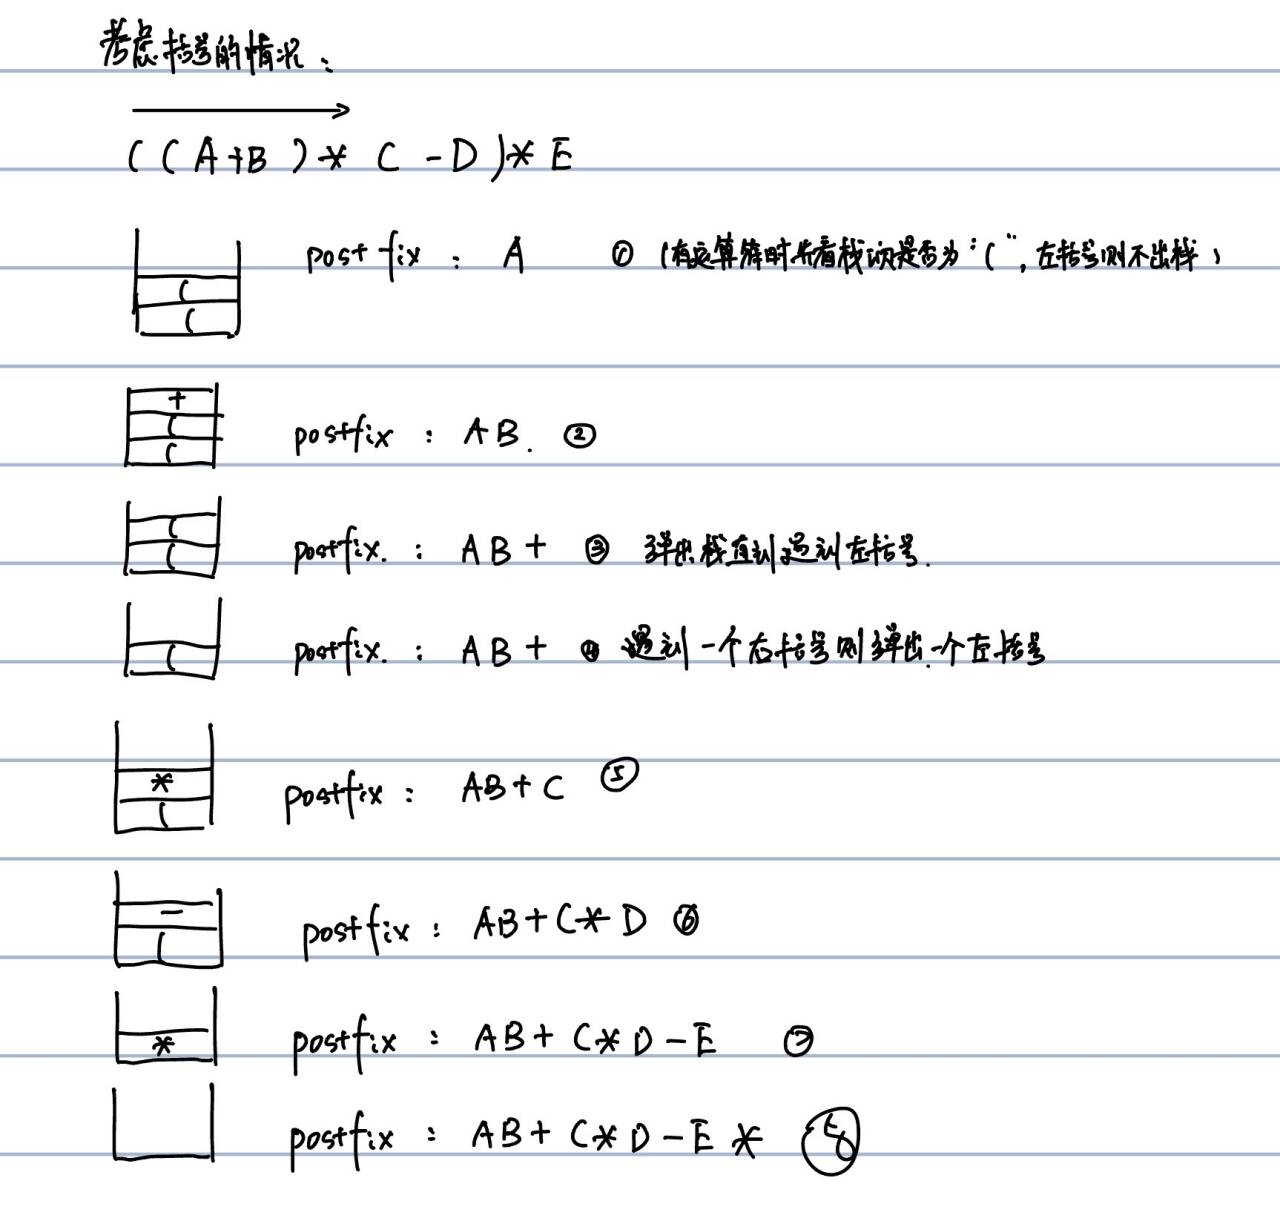 考虑括号的情况：
((A+B)* C -D)* E
(
(
postfix : A ① (有运算符时先看栈顶是否为"(", 左括号则不出栈)
+
(
(
postfix : AB. ②
(
(
postfix. : AB+ ③ 弹出栈直到遇到左括号.
(
postfix. : AB+ ④ 遇到一个右括号则弹出一个左括号
*
(
postfix : AB+C ⑤
-
(
postfix : AB+C* D ⑥
*
postfix : AB+ C* D-E ⑦
postfix : AB+ C* D-E * ⑧